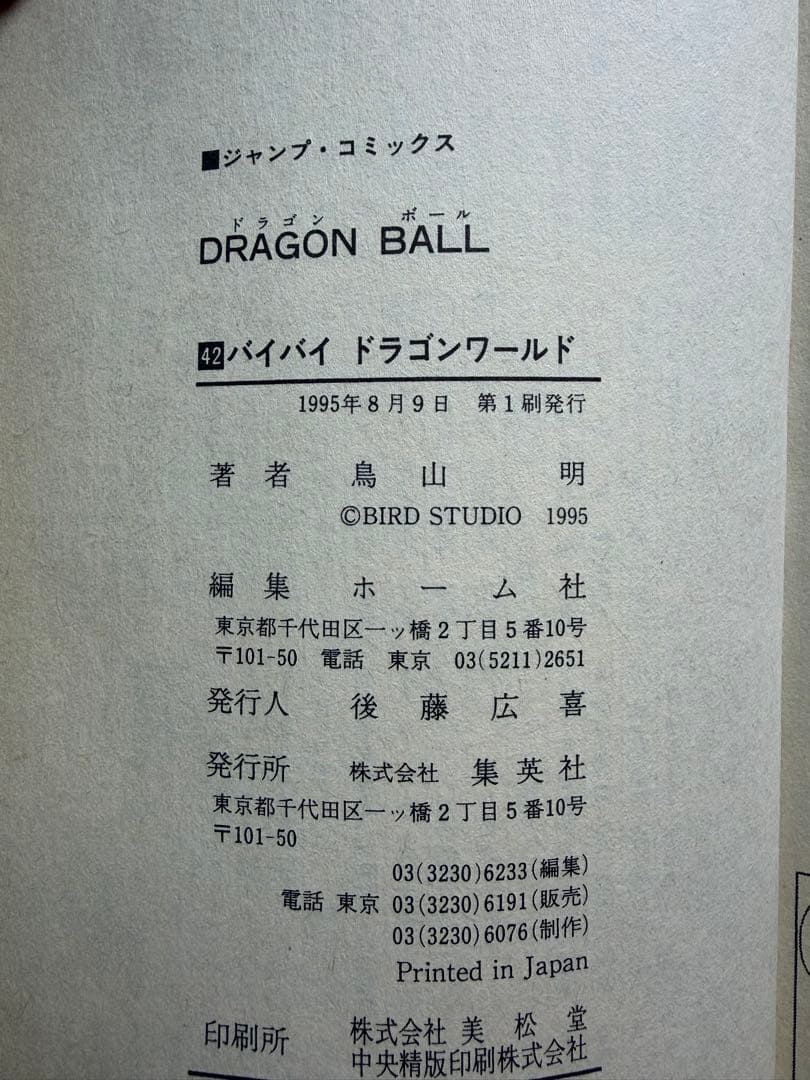 ■ジャンプ・コミックス
ドラゴン ボール
DRAGON BALL
42 バイバイ ドラゴンワールド
1995年8月9日 第1刷発行
著者 鳥山 明
©BIRD STUDIO 1995
編集 ホーム社
東京都千代田区一ッ橋2丁目5番10号
〒101-50 電話 東京 03(5211)2651
発行人 後藤広喜
発行所 株式会社 集英社
東京都千代田区一ッ橋2丁目5番10号
〒101-50
03(3230)6233(編集)
電話 東京 03(3230)6191(販売)
03(3230)6076(制作)
Printed in Japan
印刷所 株式会社 美松堂
中央精版印刷株式会社